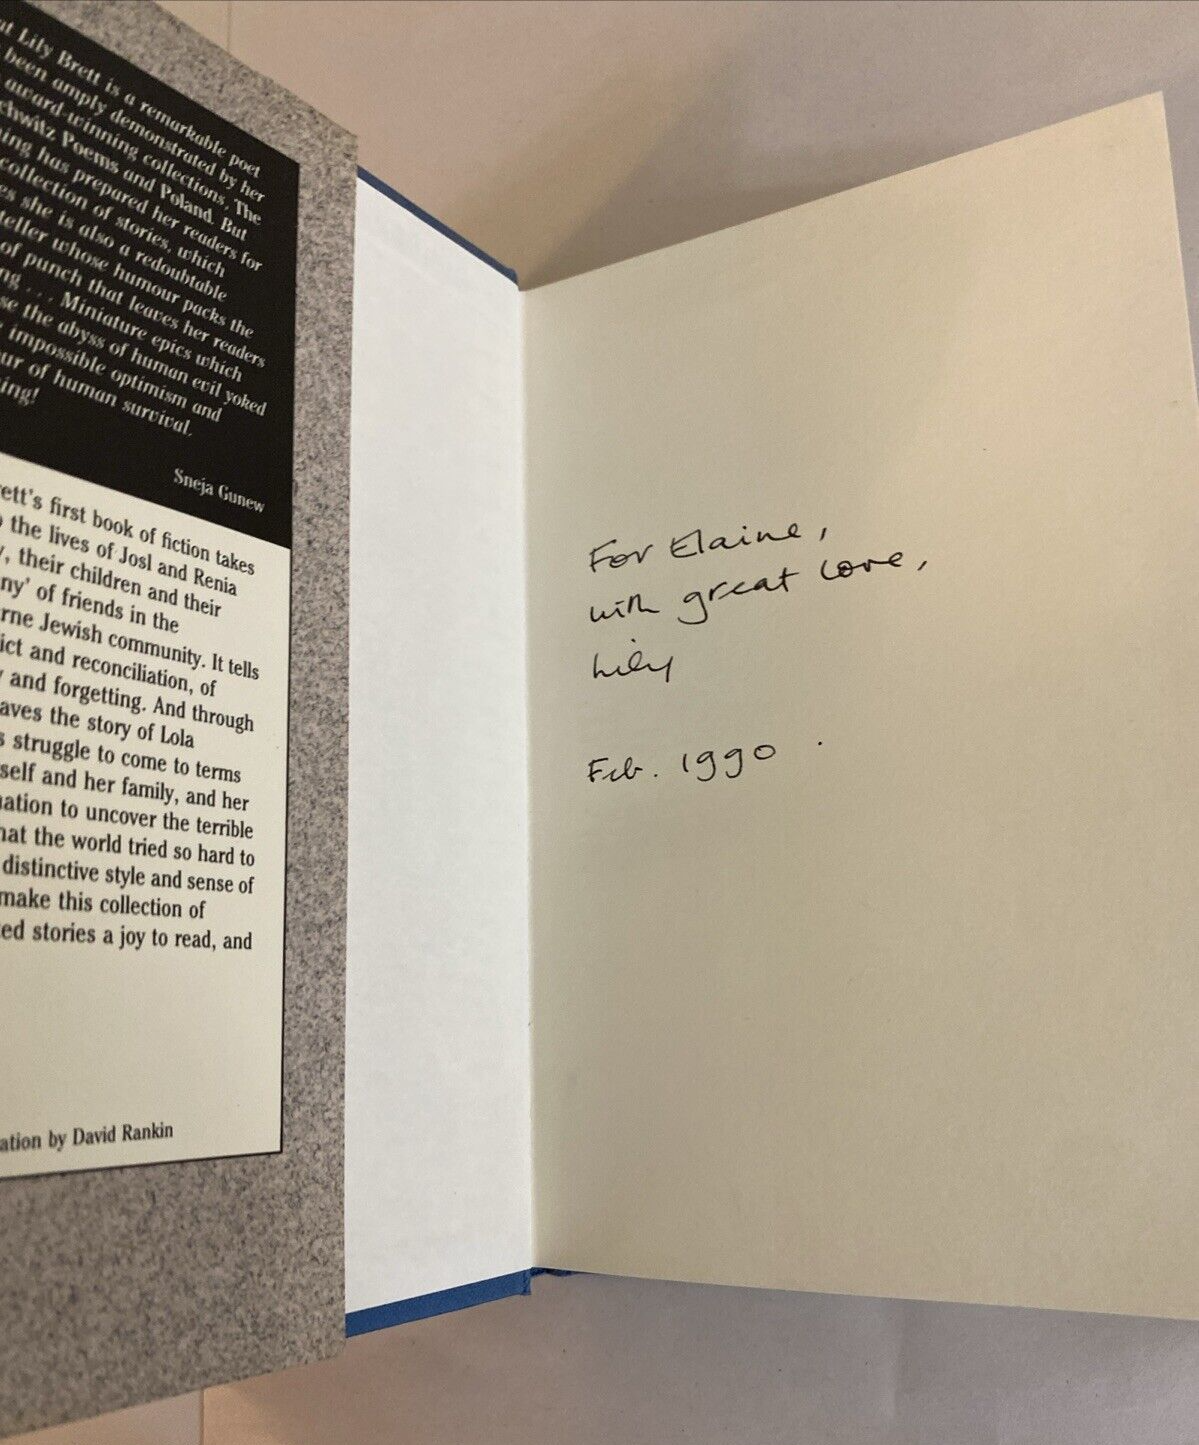 at Lily Brett is a remarkable poet
been amply demonstrated by her
award-winning collections, The
Poems and Poland. But
has prepared her readers for
collection of stories, which
she is also a redoubtable
whose humour packs the
of punch that leaves her readers
. . . Miniature epics which
the abyss of human evil yoked
impossible optimism and
of human survival.
Sneja Gunew
ett's first book of fiction takes
the lives of Josl and Renia
, their children and their
ny' of friends in the
rne Jewish community. It tells
ict and reconciliation, of
and forgetting. And through
aves the story of Lola
s struggle to come to terms
self and her family, and her
ation to uncover the terrible
hat the world tried so hard to
distinctive style and sense of
make this collection of
ed stories a joy to read, and
ation by David Rankin
For Elaine,
with great love,
Lily
Feb. 1990